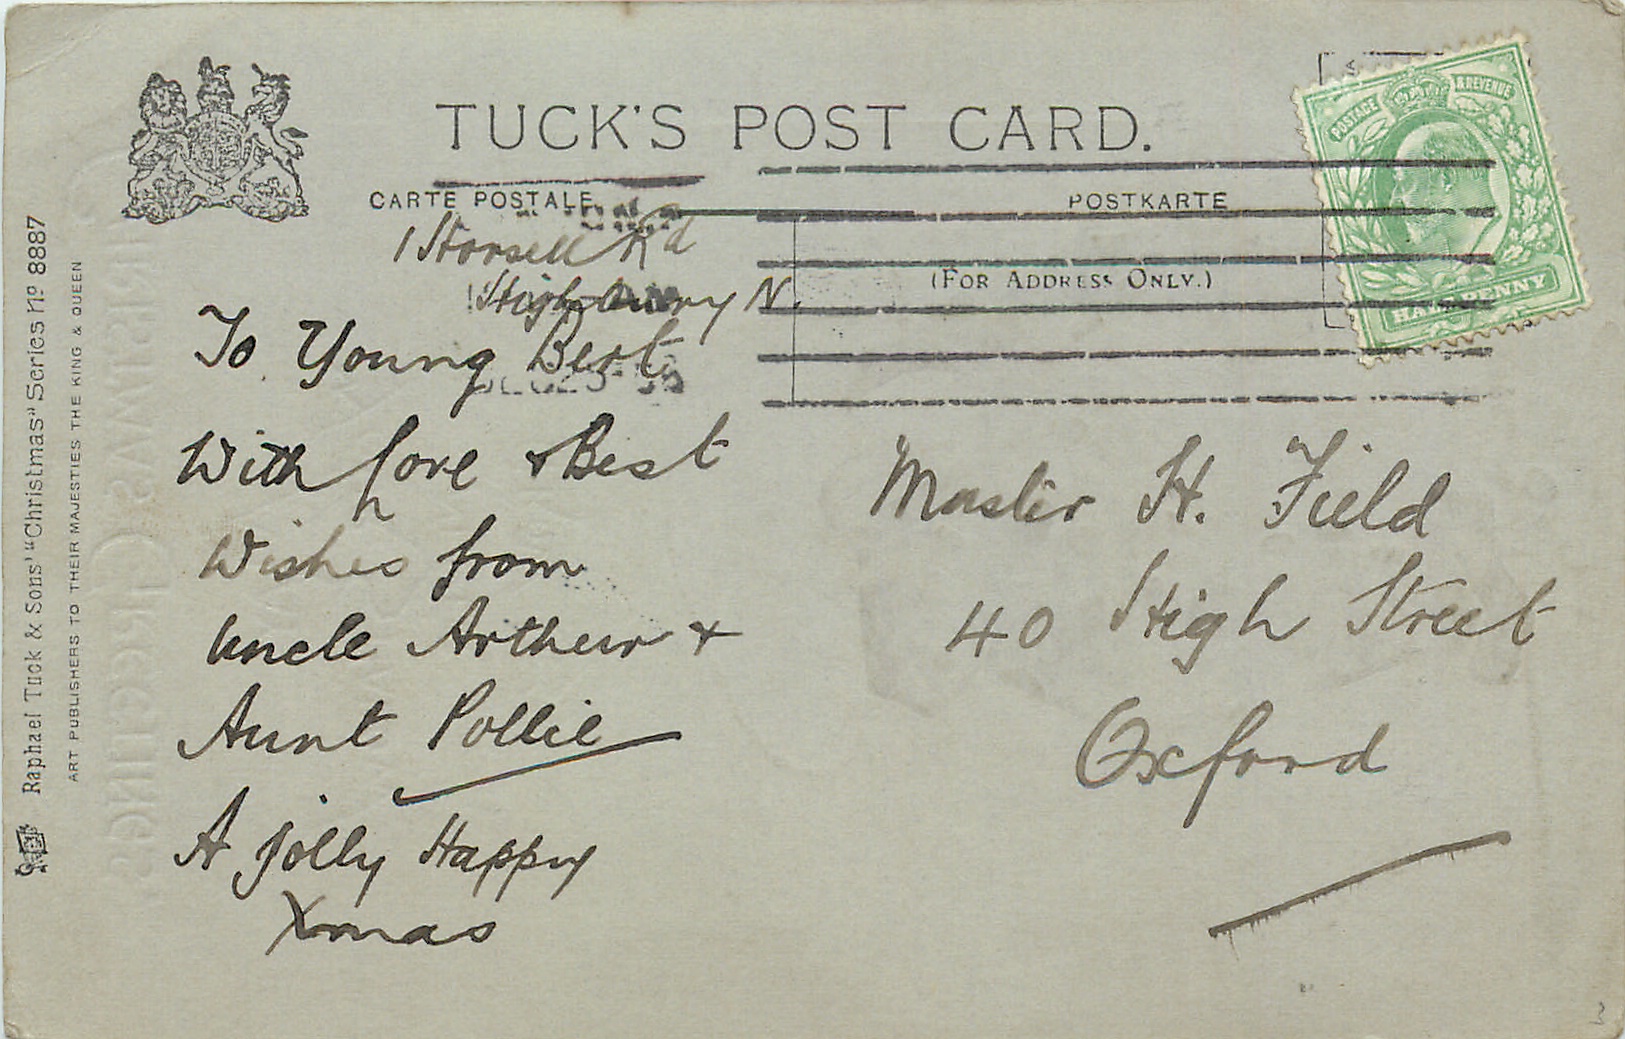 TUCK'S POST CARD.
CARTE POSTALE
POSTKARTE
(FOR ADDRESS ONLY.)
POSTAGE & REVENUE
HALFPENNY
1 Horsell Rd
Highbury N.
To Young Bert
With Love & Best
Wishes from
Uncle Arthur +
Aunt Pollie
A jolly Happy
Xmas
Master H. Field
40 High Street
Oxford
Raphael Tuck & Sons' "Christmas" Series No 8887
ART PUBLISHERS TO THEIR MAJESTIES THE KING & QUEEN
3